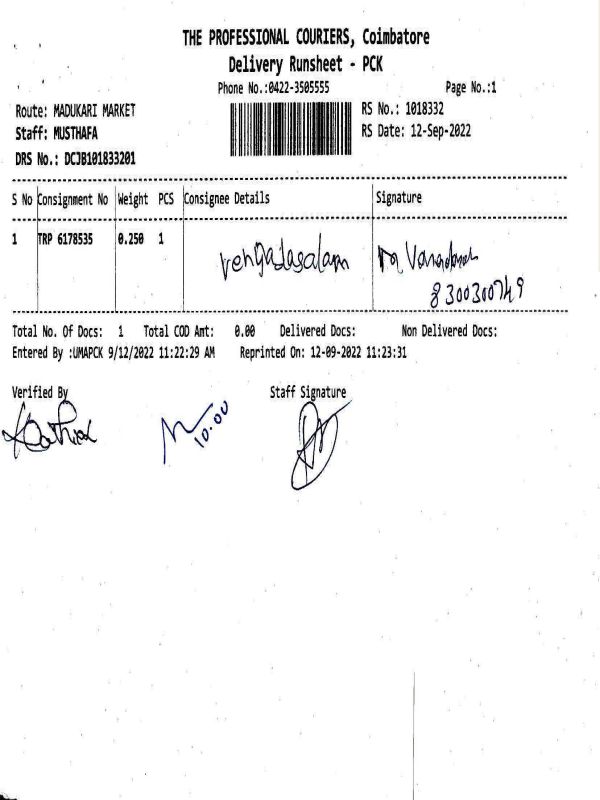 THE PROFESSIONAL COURIERS, Coimbatore
Delivery Runsheet - PCK
Phone No.:0422-3505555 Page No.:1
Route: MADUKARI MARKET RS No.: 1018332
Staff: MUSTHAFA RS Date: 12-Sep-2022
DRS No.: DCJB101833201
S No Consignment No Weight PCS Consignee Details Signature
1 TRP 6178535 0.250 1 vengadasalam
8300300749
Total No. Of Docs: 1 Total COD Amt: 0.00 Delivered Docs: Non Delivered Docs:
Entered By :UMAPCK 9/12/2022 11:22:29 AM Reprinted On: 12-09-2022 11:23:31
Verified By Staff Signature
10.00